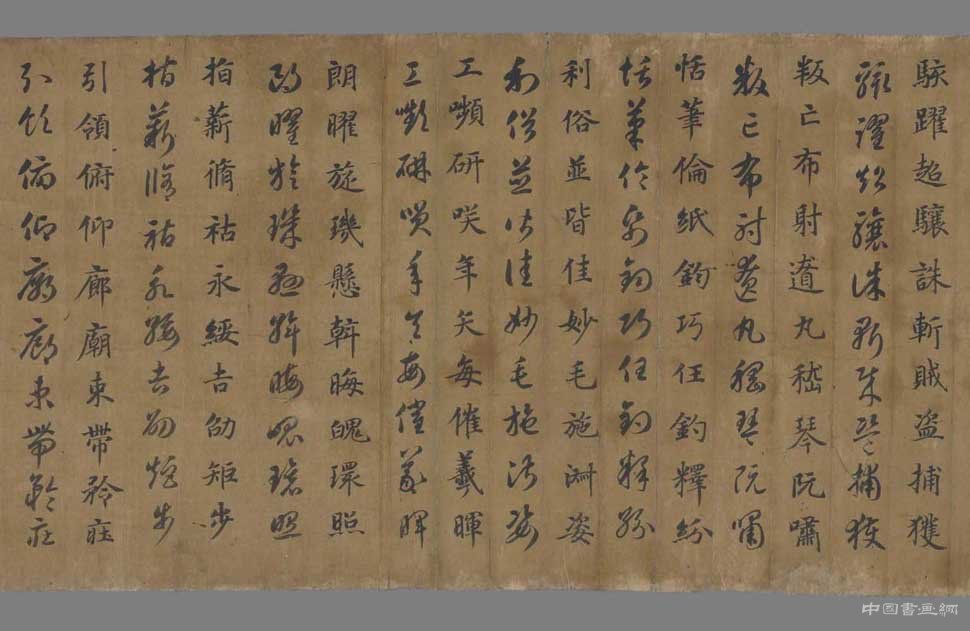 駭躍超驤誅斬賊盗捕獲
駭躍超驤誅斬賊盗捕獲
叛亡布射遼丸嵇琴阮嘯
叛亡布射遼丸嵇琴阮嘯
恬筆倫紙鈞巧任釣釋紛
恬筆倫紙鈞巧任釣釋紛
利俗並皆佳妙毛施淑姿
利俗並皆佳妙毛施淑姿
工嚬研咲年矢每催羲暉
工嚬研咲年矢每催羲暉
朗曜旋璣懸斡晦魄環照
朗曜旋璣懸斡晦魄環照
指薪脩祜永綏吉劭矩步
指薪脩祜永綏吉劭矩步
引領俯仰廊廟束帶矜莊
引領俯仰廊廟束帶矜莊
中国書画網